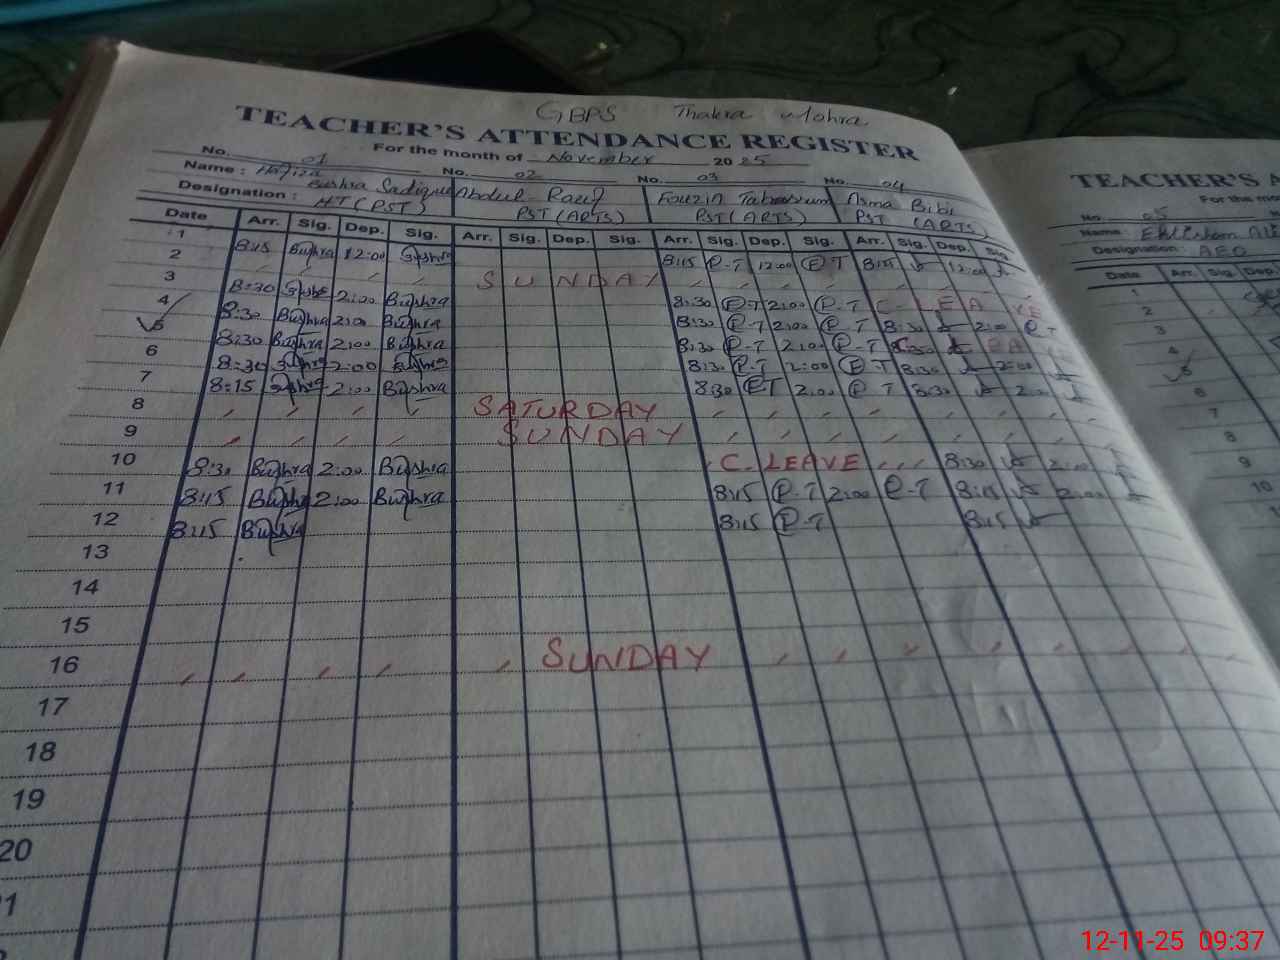 GBPS Thakra Mohra
TEACHER'S ATTENDANCE REGISTER
For the month of November 2025
No. 01 No. 02 No. 03 No. 04
Name : Bushra Sadique Abdul Rauf Fouzia Tabassum Asma Bibi
Designation : HT (PST) PST (ARTS) PST (ARTS) PST (ARTS)
Date Arr. Sig. Dep. Sig. Arr. Sig. Dep. Sig. Arr. Sig. Dep. Sig. Arr. Sig. Dep. Sig.
1 8:15 Bushra 12:00 Bushra 8:15 P-T 12:00 P-T 8:15 12:00
2 SUNDAY
3 8:30 Bushra 2:00 Bushra 8:30 P-T 2:00 P-T C-LEAVE
4 8:30 Bushra 2:00 Bushra 8:30 P-T 2:00 P-T 8:30 2:00
5 8:30 Bushra 2:00 Bushra 8:30 P-T 2:00 P-T
6 8:30 Bushra 2:00 Bushra 8:30 P-T 2:00 P-T 8:30 2:00
7 8:15 Bushra 2:00 Bushra 8:30 P-T 2:00 P-T 8:30 2:00
8 SATURDAY
9 SUNDAY
10 8:30 Bushra 2:00 Bushra C. LEAVE 8:30 2:00
11 8:15 Bushra 2:00 Bushra 8:15 P-T 2:00 P-T 8:15 2:00
12 8:15 Bushra 8:15 P-T 8:15
13
14
15
16 SUNDAY
17
18
19
20
TEACHER'S A
For the mon
No. 05
Name :
Designation : AEO
Date Arr. Sig. Dep.
1
2
3
4
5
6
7
8
9
10
12-11-25 09:37